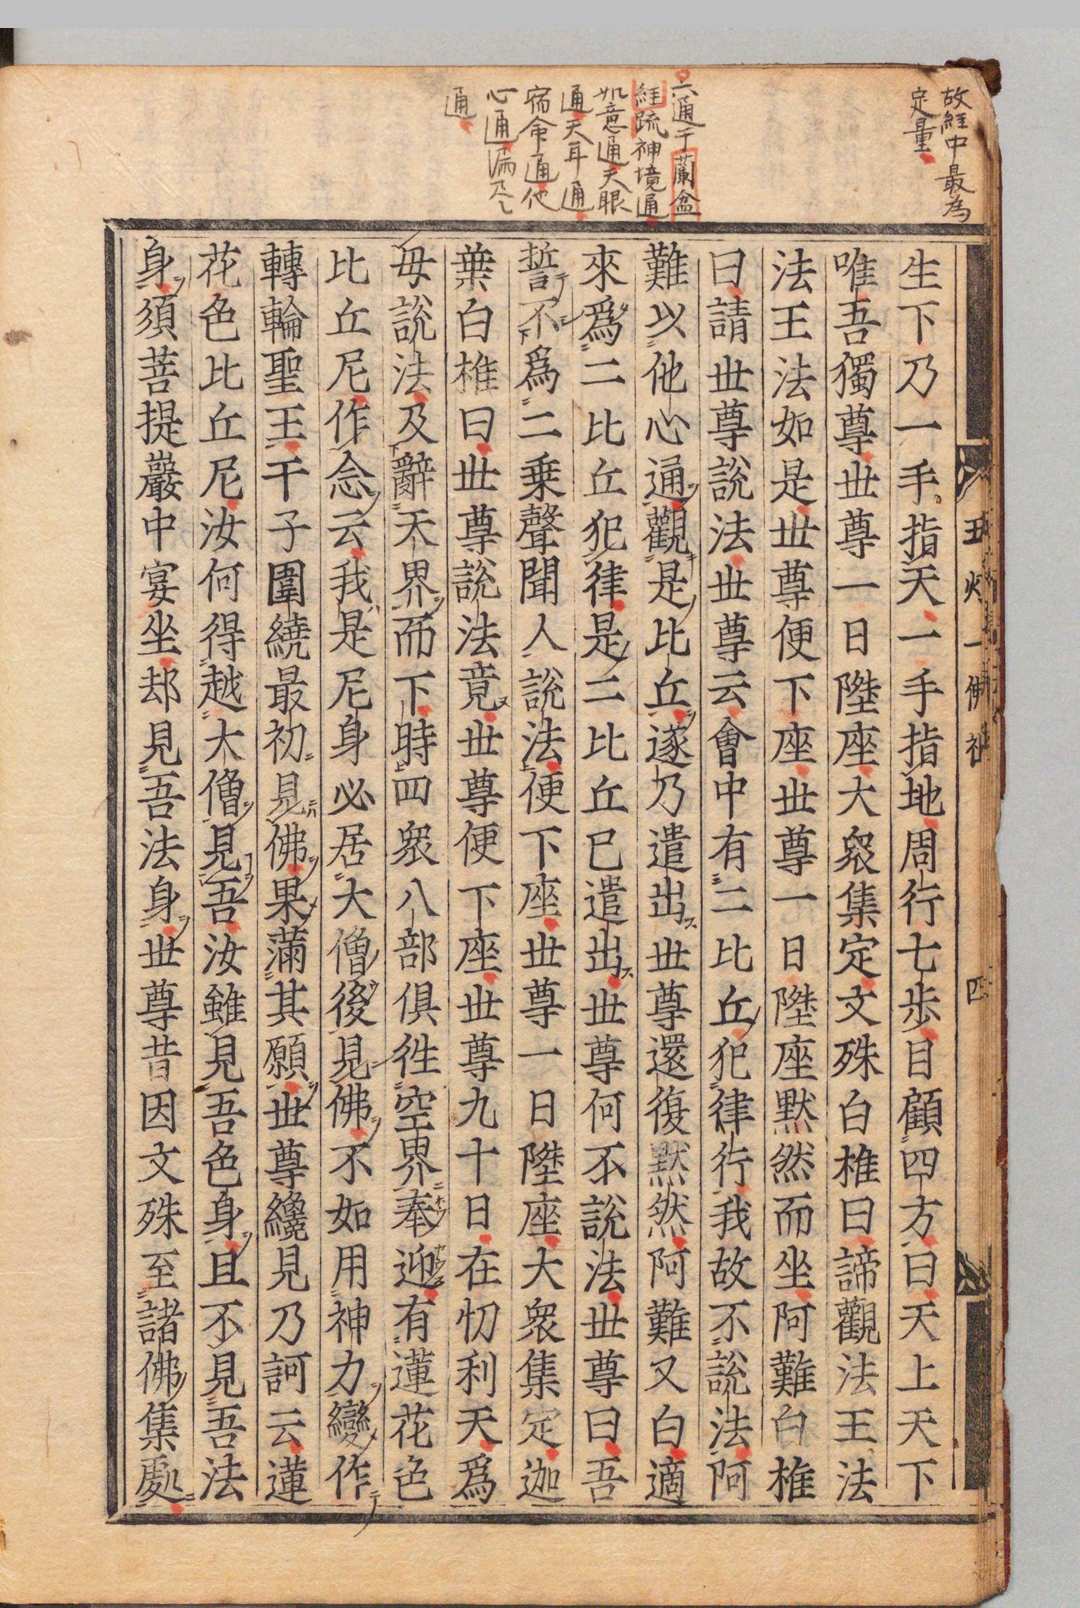 故経中最為
定量
六通于蘭盆
経疏神境通
如意通天眼
通天耳通
宿命通他
心通漏尽
通
生下乃一手指天一手指地周行七歩目顧四方曰天上天下
唯吾獨尊世尊一日陞座大衆集定文殊白椎曰諦觀法王法
法王法如是世尊便下座世尊一日陞座黙然而坐阿難白椎
曰請世尊說法世尊云會中有二比丘犯律行我故不說法阿
難以他心通觀是比丘遂乃遣出世尊還復黙然阿難又白適
來爲二比丘犯律是二比丘已遣出世尊何不說法世尊曰吾
誓不爲二乗聲聞人說法便下座世尊一日陞座大衆集定迦
葉白椎曰世尊說法竟世尊便下座世尊九十日在忉利天爲
母說法及辭天界而下時四衆八部俱徃空界奉迎有蓮花色
比丘尼作念云我是尼身必居大僧後見佛不如用神力變作
轉輪聖王千子圍繞最初見佛果滿其願世尊纔見乃訶云蓮
花色比丘尼汝何得越大僧見吾汝雖見吾色身且不見吾法
身須菩提巖中宴坐却見吾法身世尊昔因文殊至諸佛集處
五灯一佛祖 四